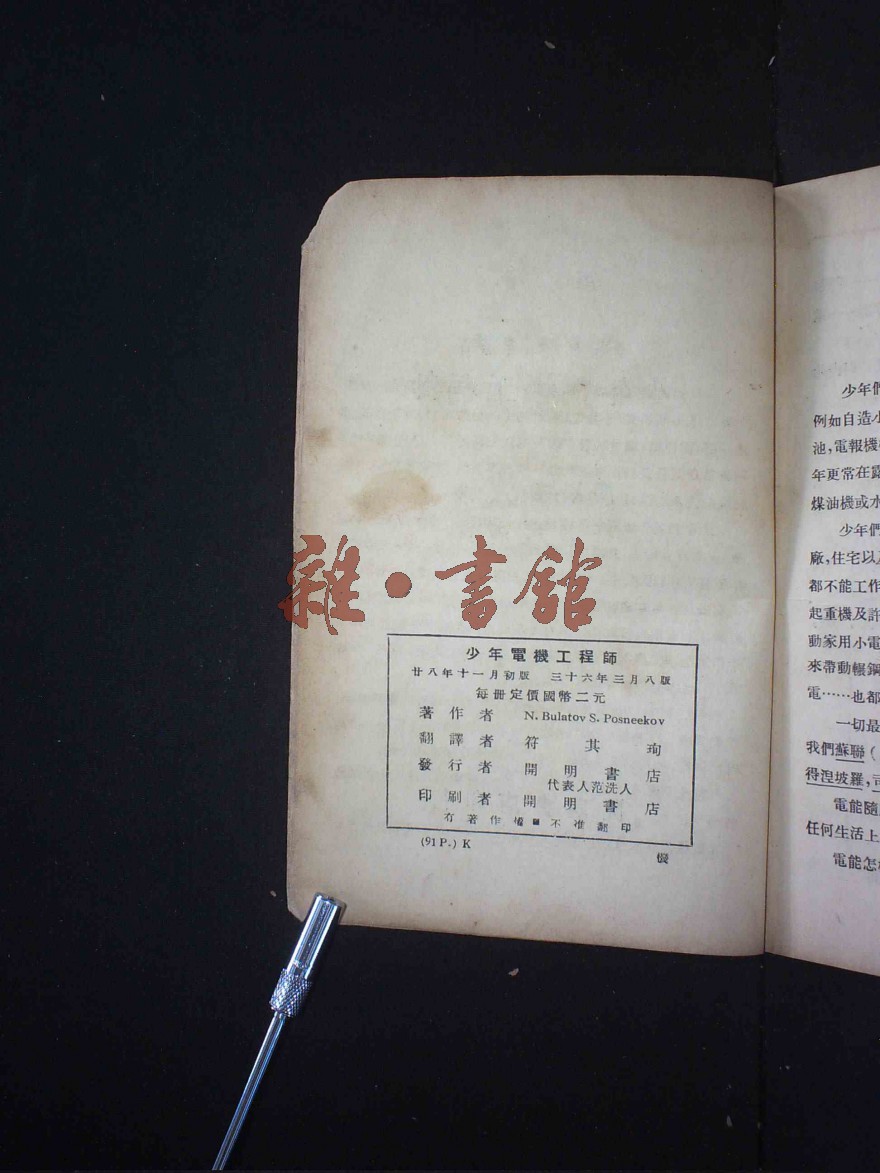 雜·書館
少年電機工程師
廿八年十一月初版 三十六年三月八版
每冊定價國幣二元
著作者 N. Bulatov S. Posneekov
翻譯者 符其珣
發行者 開明書店
代表人范洗人
印刷者 開明書店
有著作權 不准翻印
(91 P.) K
少年們
例如自造小
池,電報機
年更常在露
煤油機或水
少年們
廠,住宅以及
都不能工作
起重機及許
動家用小電
來帶動輾鋼
電……也都
一切最
我們蘇聯(
得湼坡羅,
電能隨
任何生活上
電能怎